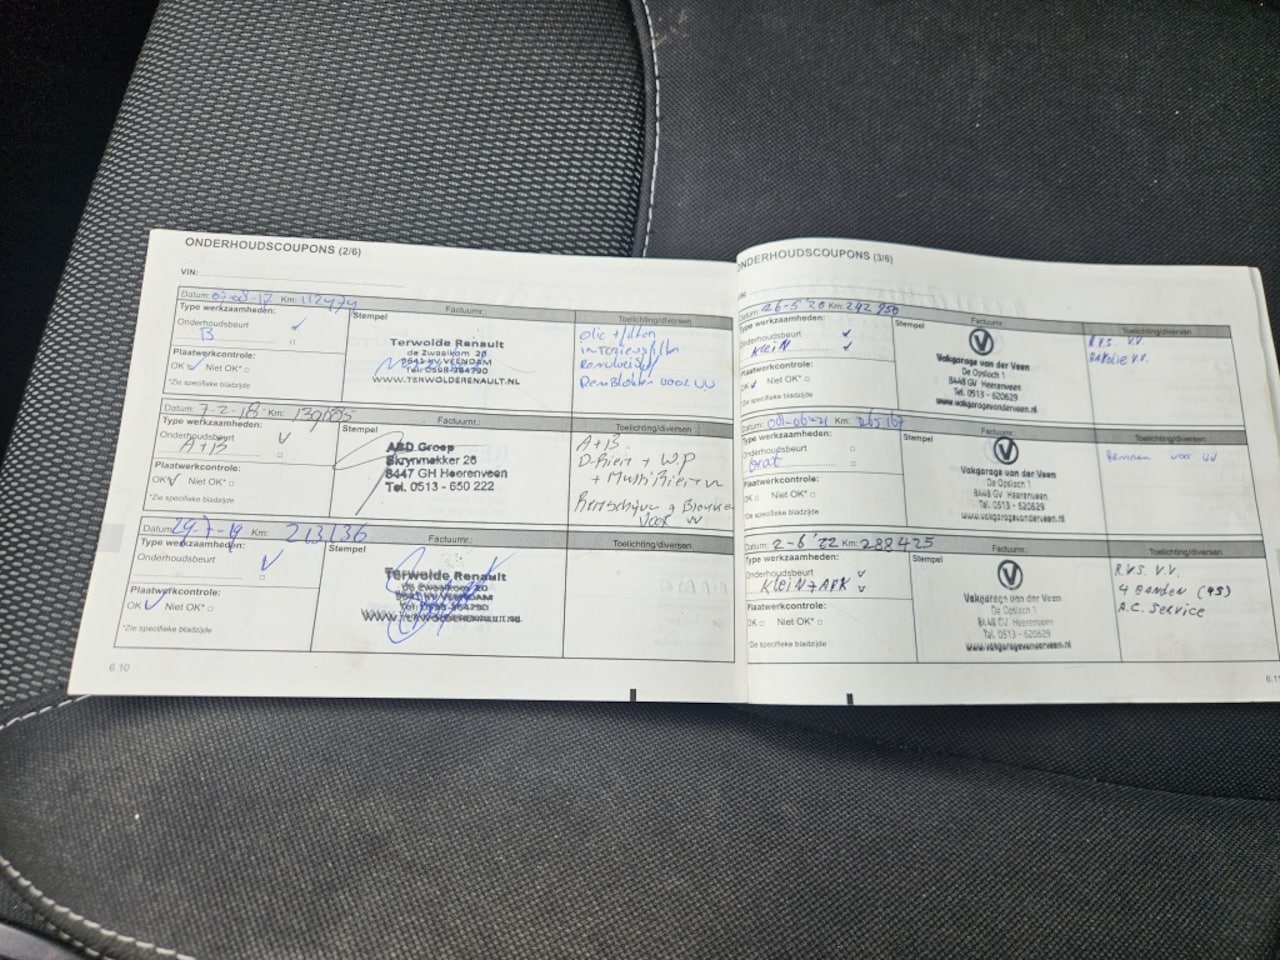 ONDERHOUDSCOUPONS (2/6)
VIN:
Datum: Km: 112474
Type werkzaamheden: Stempel Factuurnr.: Toelichting/diversen
Onderhoudsbeurt
B
Plaatwerkcontrole:
OK Niet OK*
*Zie specifieke bladzijde
Terwolde Renault
de Zwaaikom 20
9641 KV VEENDAM
Tel: 0598-364790
WWW.TERWOLDERENAULT.NL
Olie + filter
interieurfilter
Remvloeistof
Remblokken voor VV
Datum: 7-2-18 Km:
Type werkzaamheden: Stempel Factuurnr.: Toelichting/diversen
Onderhoudsbeurt
A+B
Plaatwerkcontrole:
OK Niet OK*
*Zie specifieke bladzijde
ABD Groep
Skrynmakker 26
8447 GH Heerenveen
Tel. 0513 - 650 222
A+B.
D-Riem + W.P
+ Multi Riem
Voor VV
Datum: 29-7-19 Km: 213136
Type werkzaamheden: Stempel Factuurnr.: Toelichting/diversen
Onderhoudsbeurt
Plaatwerkcontrole:
OK Niet OK*
*Zie specifieke bladzijde
Terwolde Renault
de Zwaaikom 20
9641 KV VEENDAM
Tel: 0598-364790
WWW.TERWOLDERENAULT.NL
6.10
ONDERHOUDSCOUPONS (3/6)
VIN
Datum: 26-5'20 Km: 242950
Type werkzaamheden: Stempel Factuurnr.: Toelichting/diversen
Onderhoudsbeurt
Klein
Plaatwerkcontrole:
OK Niet OK*
*Zie specifieke bladzijde
V
Vakgarage van der Veen
De Opslach 1
8448 GV Heerenveen
Tel. 0513 - 620629
www.vakgaragevanderveen.nl
R.V.S. V.V.
Datum: Km:
Type werkzaamheden: Stempel Factuurnr.: Toelichting/diversen
Onderhoudsbeurt
Groot
Plaatwerkcontrole:
OK Niet OK*
*Zie specifieke bladzijde
V
Vakgarage van der Veen
De Opslach 1
8448 GV Heerenveen
Tel. 0513 - 620629
www.vakgaragevanderveen.nl
Remmen voor VV
Datum: 2-6'22 Km: 288425
Type werkzaamheden: Stempel Factuurnr.: Toelichting/diversen
Onderhoudsbeurt
Klein + APK
Plaatwerkcontrole:
OK Niet OK*
*Zie specifieke bladzijde
V
Vakgarage van der Veen
De Opslach 1
8448 GV Heerenveen
Tel. 0513 - 620629
www.vakgaragevanderveen.nl
R.V.S. V.V.
4 Banden (4S)
A.C. Service
6.11